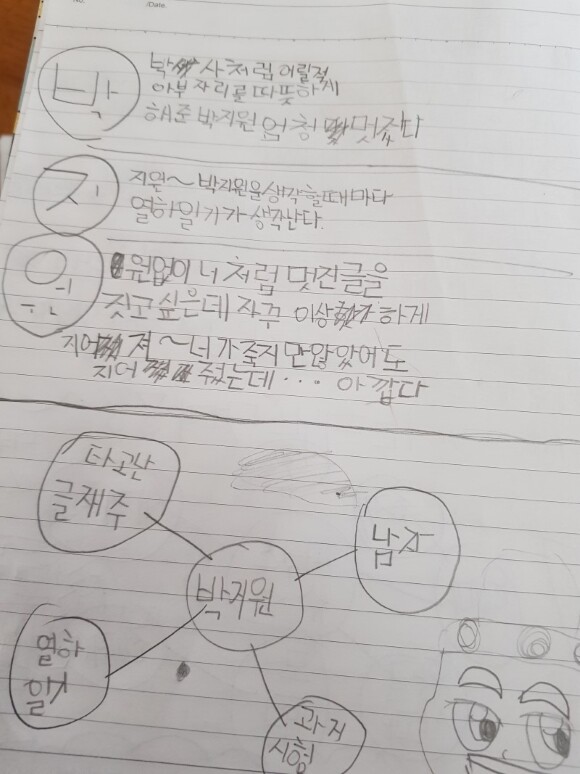 No. /Date.
박
박사처럼 어릴적
아부자리를 따뜻하게
해준 박지원 엄청 멋있다
지
지원~ 박지원을 생각할때마다
열하일기가 생각난다.
원
원없이 너처럼 멋진글을
짓고 싶은데 자꾸 이상하게
지어져~너가 죽지만 않았어도
지어 줬는데... 아깝다
타고난
글재주
남자
박지원
열하
일기
과거
시험